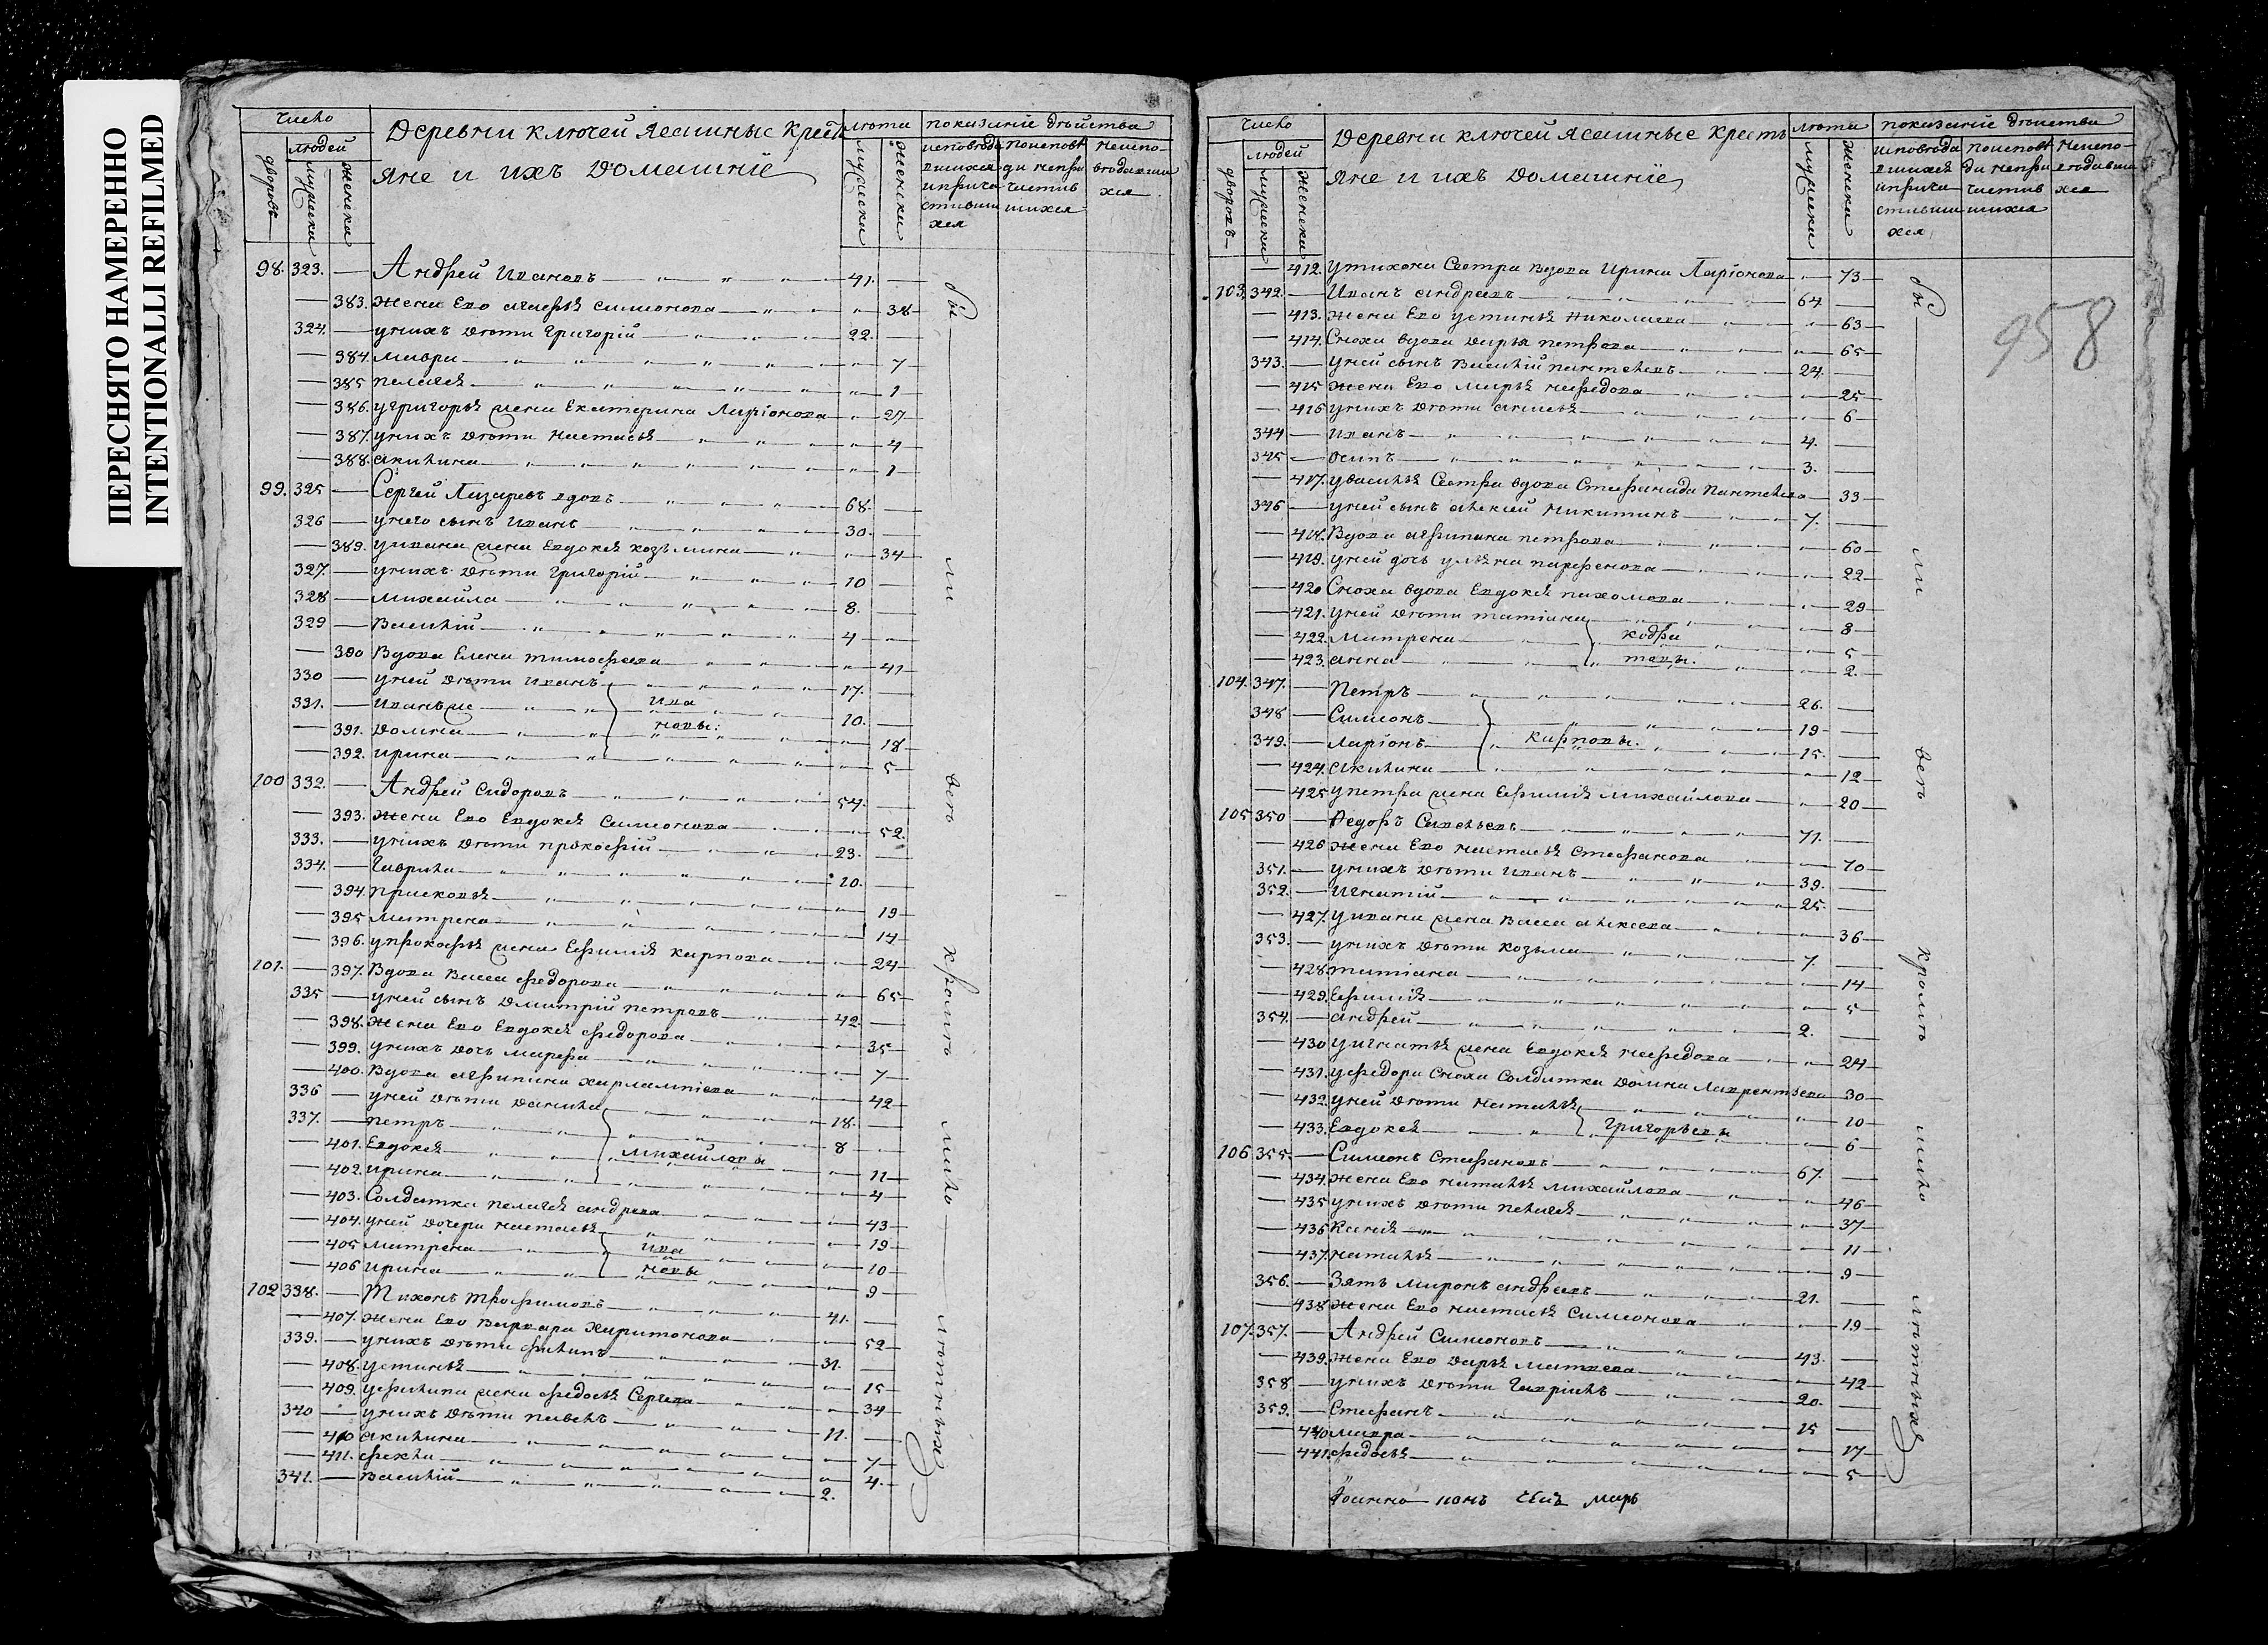 ПЕРЕСНЯТО НАМЕРЕННО
INTENTIONALLI REFILMED
число
людей
дворовъ
мужеска
женска
деревни ключей ясашные кресть
яне и ихъ домашніе
лѣта
мужески
женски
показаніе дѣйства
исповѣдавшихся и причастившихся
по исповѣди не причастившихся
не исповѣдавшихся
98. 323. — Андрей Ивановъ 41.
— 383. жена Ево Агафья Симионова 38
324. — у нихъ дѣти Григорій 22.
— 384. Мавра 7
— 385 пелагея 1
— 386. у григорья жена Екатерина Ларіонова 27
— 387. у нихъ дѣти настасья 4
— 388. акилина 1
99. 325 — Сергей Лазаревъ вдовъ 68.
326 — у него сынъ Иванъ 30.
— 389. у ивана жена Евдокея козьмина 34
327. — у нихъ дѣти Григорій 10
328 — Михайла 8.
329 — Василій 4
— 390 Вдова Елена тимофеева 41
330 — у ней дѣти Иванъ 17.
331. — Иванъ же 10.
— 391. домна 18
— 392. ирина 5
Ива
новы.
100 332. — Андрей Сидоровъ 54.
— 393. жена Ево Евдокея Симионова 52.
333. — у нихъ дѣти прокофій 23.
334. — Гаврила 10.
— 394 прасковья 19
— 395 матрена 14
— 396. у прокофья жена Ефимія карпова 24
101. — 397. Вдова Васса федорова 65
335 — у ней сынъ дмитрій петровъ 42.
— 398. жена Ево Евдокея федорова 35
— 399. у нихъ дочь марфа 7
— 400. Вдова агрипина харлампіева 42
336 — у ней дѣти данила 18.
337. — петръ 8
— 401. Евдокея 11
— 402. ирина 4
михайловы
— 403. Солдатка пелагея андреева 43
— 404. у ней дочери настасья 19
— 405 матрена 10
— 406 ирина 9
Ива
новы
102 338. — Тихонъ трофимовъ 41.
— 407. жена Ево Варвара Харитонова 52
339. — у нихъ дѣти филипъ 31.
— 408. устинья 15
— 409. у филипа жена федосья Сергеева 34
340 — у нихъ дѣти павелъ 11.
— 410 акилина 7
— 411. фекла 4.
341. — василій 2.
бы ли всѣ кромѣ мало лѣтныхъ
число
людей
дворовъ
мужеска
женска
деревни ключей ясашные кресть
яне и ихъ домашніе
лѣта
мужески
женски
показаніе дѣйства
исповѣдавшихся и причастившихся
по исповѣди не причастившихся
не исповѣдавшихся
958
— 412. у тихона Сестра вдова Ирина Ларіонова 73
103. 342. — Иванъ андреевъ 64
— 413. жена Ево устинья николаева 63
— 414. Сноха вдова дарья петрова 65
343. — у ней сынъ Василій пантелеевъ 24.
— 415 жена Ево марья нефедова 25
— 416 у нихъ дѣти 6
344 — Иванъ 4.
345 — осипъ 3.
— 417. у василья Сестра вдова Стефанида Пантелеева 33
346 — у ней сынъ алексей никитинъ 7.
— 418. Вдова агрипина петрова 60
— 419. у ней дочь ульяна парфенова 22
— 420 Сноха вдова Евдокея пахомова 29
— 421. у ней дѣти татіана 8
— 422. матрена 5
— 423. анна 2.
кодра
товы.
104. 347. — Петръ 26.
348 — Симионъ 19
349. — Ларіонъ 15.
— 424. акилина 12
карповы.
— 425 у петра жена Ефимія михайлова 20
105 350 — Федоръ Савельевъ 71.
— 426 жена Ево настасья Стефанова 70
351. — у нихъ дѣти Иванъ 39.
352. — Игнатій 25.
— 427. у ивана жена Васса алексеева 36
353. — у нихъ дѣти козьма 7.
— 428. татіана 14
— 429. Ефимія 5
354. — андрей 2.
— 430 у игнатья жена Евдокея нефедова 24
— 431. у федора Сноха Солдатка домна лаврентьева 30
— 432. у ней дѣти наталья 10
— 433. Евдокея 6
Григорьевы
106 355. — Симионъ Стефановъ 67.
— 434. жена Ево наталья михайлова 46
— 435 у нихъ дѣти пелагея 37
— 436 11
— 437. наталья 9
356. — Зять миронъ андреевъ 21.
— 438 жена Ево настасья Симионова 19
107. 357. — Андрей Симионовъ 43.
— 439. жена Ево дарья матвеева 42
358 — у нихъ дѣти Гавріилъ 20.
359. — Стефанъ 15
— 440 мавра 17
— 441. федосья 5
бы ли всѣ кромѣ мало лѣтныхъ